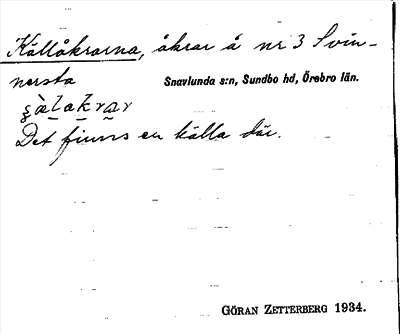 Källåkrarna, åkrar å nr 3 Svin-
nersta
Snavlunda s:n, Sundbo hd, Örebro län.
Det finns en källa där.
GÖRAN ZETTERBERG 1934.